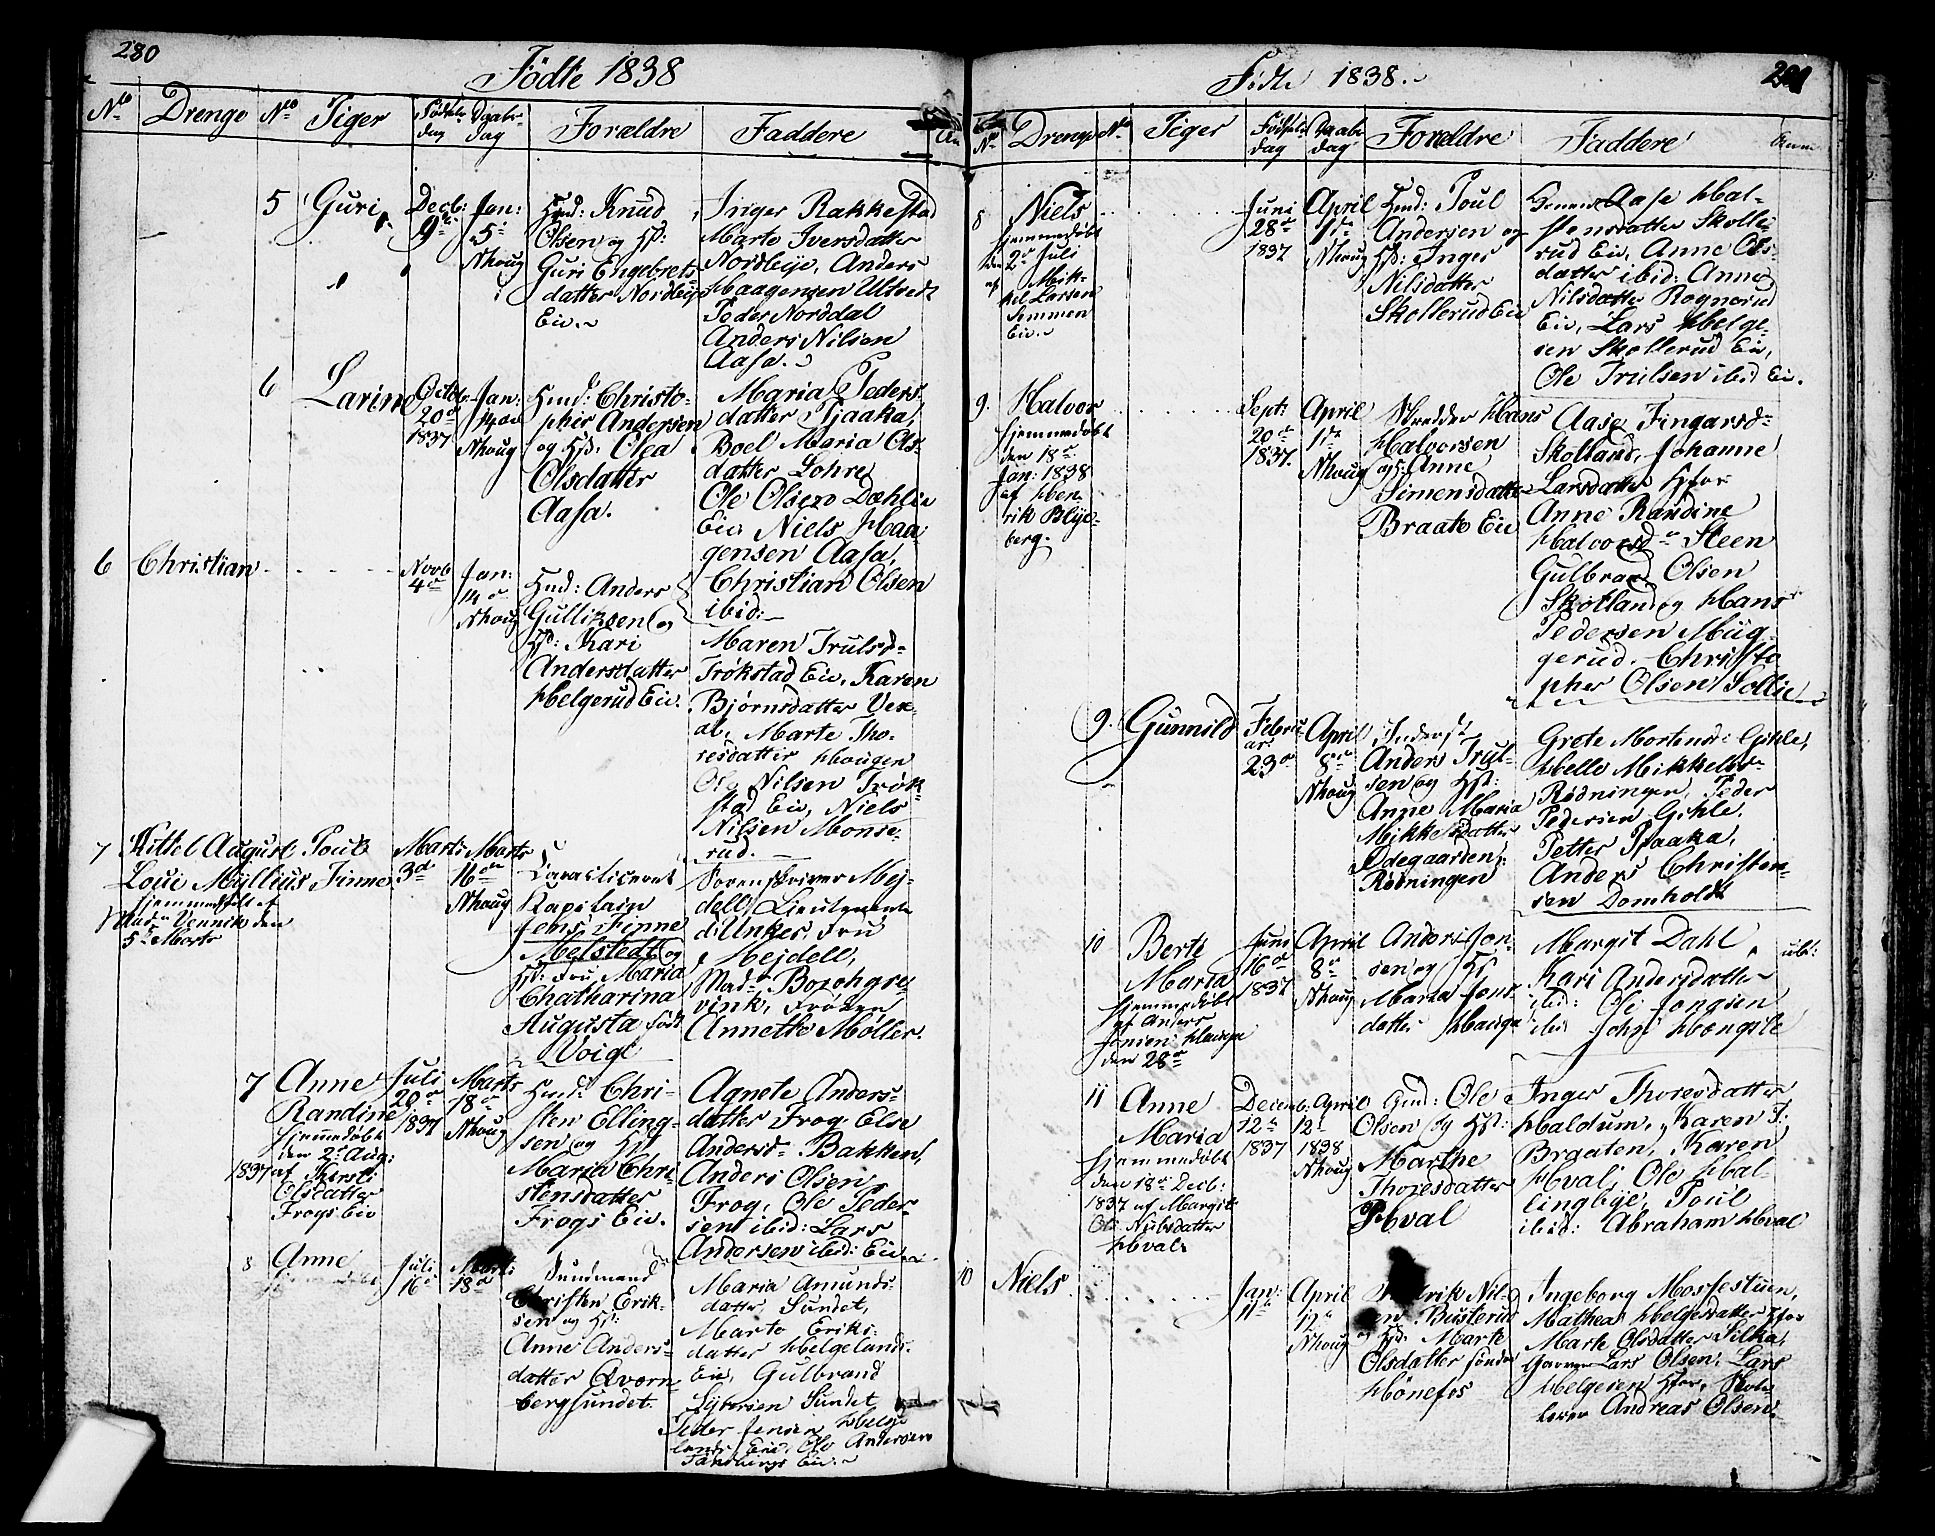 280
Födte 1838
No Drenge No Piger Födsels dag Daabs dag Forældre Faddere
5 Guri
Decb: 9de
Jan: 5te Nhoug
Hmd: Knud
Olsen og Hs:
Guri Engebrets-
datter Nordbye
Eie.
Inger Rakkestad
Marte Iversdatter
Nordbye, Anders
Haagensen Ultvedt
Peder Norddal
Anders Nilsen
Aasa.
6 Larine
Octob. 20de 1837
Jan: 14de Nhoug
Hmd: Christo-
pher Andersen
og Hs: Olea
Olsdatter
Aasa.
Maria Peders-
datter Pjaaka,
Boel Maria Ols-
datter Lohre
Ole Olsen Dæhlie
Eie, Niels Haa-
gensen Aasa,
Christian Olsen
ibid:
6 Christian
Novb 4de
Jan: 14de Nhoug
Hmd: Anders
Gulliksen og
Hs: Kari
Andersdatter
Helgerud Eie.
Maren Trulsd-
Trøkstad Eie, Karen
Bjørnsdatter Vex-
al, Marte Tho-
resdatter Hougen
Ole Nilsen Trøk-
stad Eie, Niels
Nilsen Monse-
rud.
7 Kittel August Poul
Loui Myllius Finne
hjemmedøbt af
Mad: Vennik den
5te Marts
Marts 3de
Marts 16de Nhoug
Caracticeret
Kapitain
Jens Finne
Melstedt og
Hs: Fru Maria
Chatharina
Augusta født
Voigt
Sorenskriver Mej-
dell, Lieutenant
d'Unker, Fru
Mejdell,
Mad: Borchgre-
vink, Frøken
Annette Møller.
7 Anne
Randine
hjemmedøbt
den 2de Aug:
1837 af Kirsti
Olsdatter
Frogs Eie
Juli 20de 1837
Marts 18de Nhoug
Hmd: Chri-
sten Elling-
sen og Hs:
Maria Chri-
stensdatter
Frogs Eie.
Agnete Anders-
datter Frog Else
Andersd- Bakken,
Anders Olsen
Frog, Ole Peder-
sen ibid: Lars
Andersen ibid: Eie
8 Anne
Juli 16de
Marts 18de
Sundmand
Christen Erik-
sen og Hs:
Anne Anders-
datter Qvern-
bergsundet.
Maria Amunds-
datter Sundet,
Marte Eriks-
datter Helgelands-
Eie, Gulbrand
Syversen Sundet
Peder Jensen Helge-
lands Eie, Ole Andersen
Tandbergs Eie.
281
Födte 1838.
No Drenge No Piger Födsels dag Daabs dag Forældre Faddere Anm
8 Niels
hjemmedøbt
den 2de Juli
af Mik-
kel Larsen
Semmen
Eie.
Juni 28de 1837
April 1ste Nhoug
Hmd: Poul
Andersen og
Hs: Inger
Nilsdatter
Skollerud Eie
Aase Hal-
stensdatter Skolle-
rud Eie, Anne Ols-
datter ibid: Anne
Nilsdatter Rognerud
Eie, Lars Helge-
sen Skollerud Eie,
Ole Trulsen ibid Eie.
9. Halvor
hjemmedøbt
den 18de
Jan: 1838
af Hen-
rik Blye-
berg.
Sept: 20de 1837.
April 1ste Nhoug
Skredder Hans
Halvorsen
og Anne
Simensdatter
Braate Eie
Aase Fingarsd-
Skolland, Johanne
Larsdatter Hfos
Anne Randine
Halvorsd- Steen
Gulbrand Olsen
Skolland og Hans
Pedersen Müg-
gerud. Christo
pher Olsen Sollie
9. Gunnild
Februar 23de
April 8de Nhoug
Inderst
Anders Trul-
sen og Hs:
Anne Maria
Mikkelsdatter
Ødegaarden
Rødningen
Grete Mortensd: Gihle,
Helle Mikkelsd-
Rødningen, Peder
Pedersen Gihle,
Petter Pjaaka,
Anders Christen-
sen Domholdt
10 Berte
Maria
hjemmedøbt
af Anders
Jonsen Hauga
den 28de
Juni 16de 1837
April 8de Nhoug
Anders Jon-
sen og Hs
Maria Jons-
datter Hauga
Margit Dahl
Kari Andersdatter
ibid: Ole Jongsen
ibid Johs Hængsle
11 Anne
Maria
hjemmedøbt
den 18de Decb:
1837 af Margit
Nilsdatter
Hval
Decemb: 12te 1837
April 12te 1838 Nhoug
Gmd: Ole
Olsen og Hs:
Marthe
Thoresdatter
Hval
Inger Thoresdatter
Haldum, Karen T:
Braaten, Karen
Hval, Ole Hal-
lingbye, Poul
ibid: Abraham Hval
10 Niels
Jan: 11te
April 12te Nhoug
Nil-
sen Busterud
og Hs: Marte
Olsdatter søndre
Hønefos
Ingeborg Mosfestuen,
Mathea Helgesdatter Hfos
Marte Olsdatter Silka,
Garver Lars Olsen, Lars
Helgesen Hfos, Sko-
lerer Andreas Olsen.